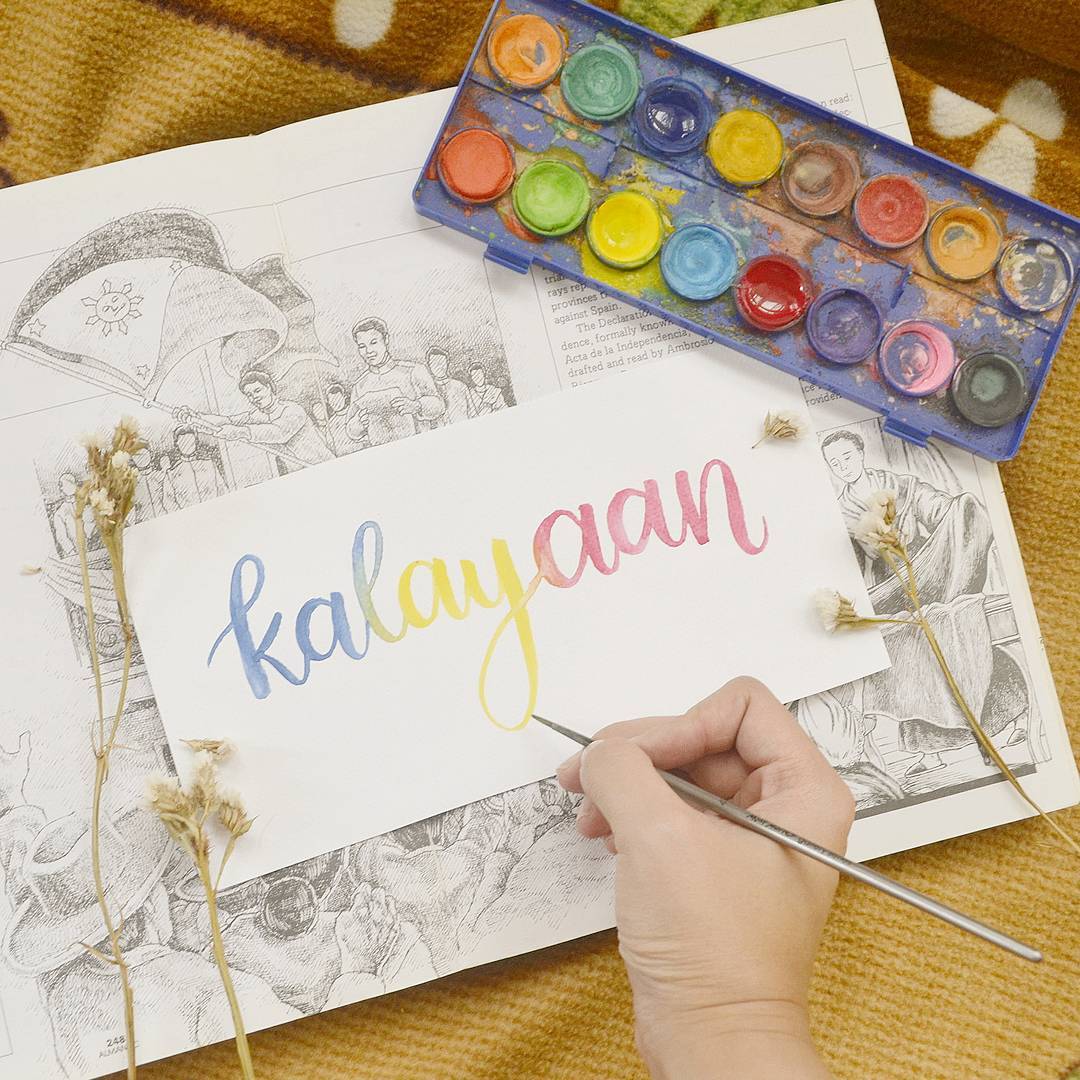 n read:
rays rep
provinces
against Spain.
The Declaration
dence, formally known
Acta de la Independencia,
drafted and read by Ambrosio
kalayaan
248
ALMANAC